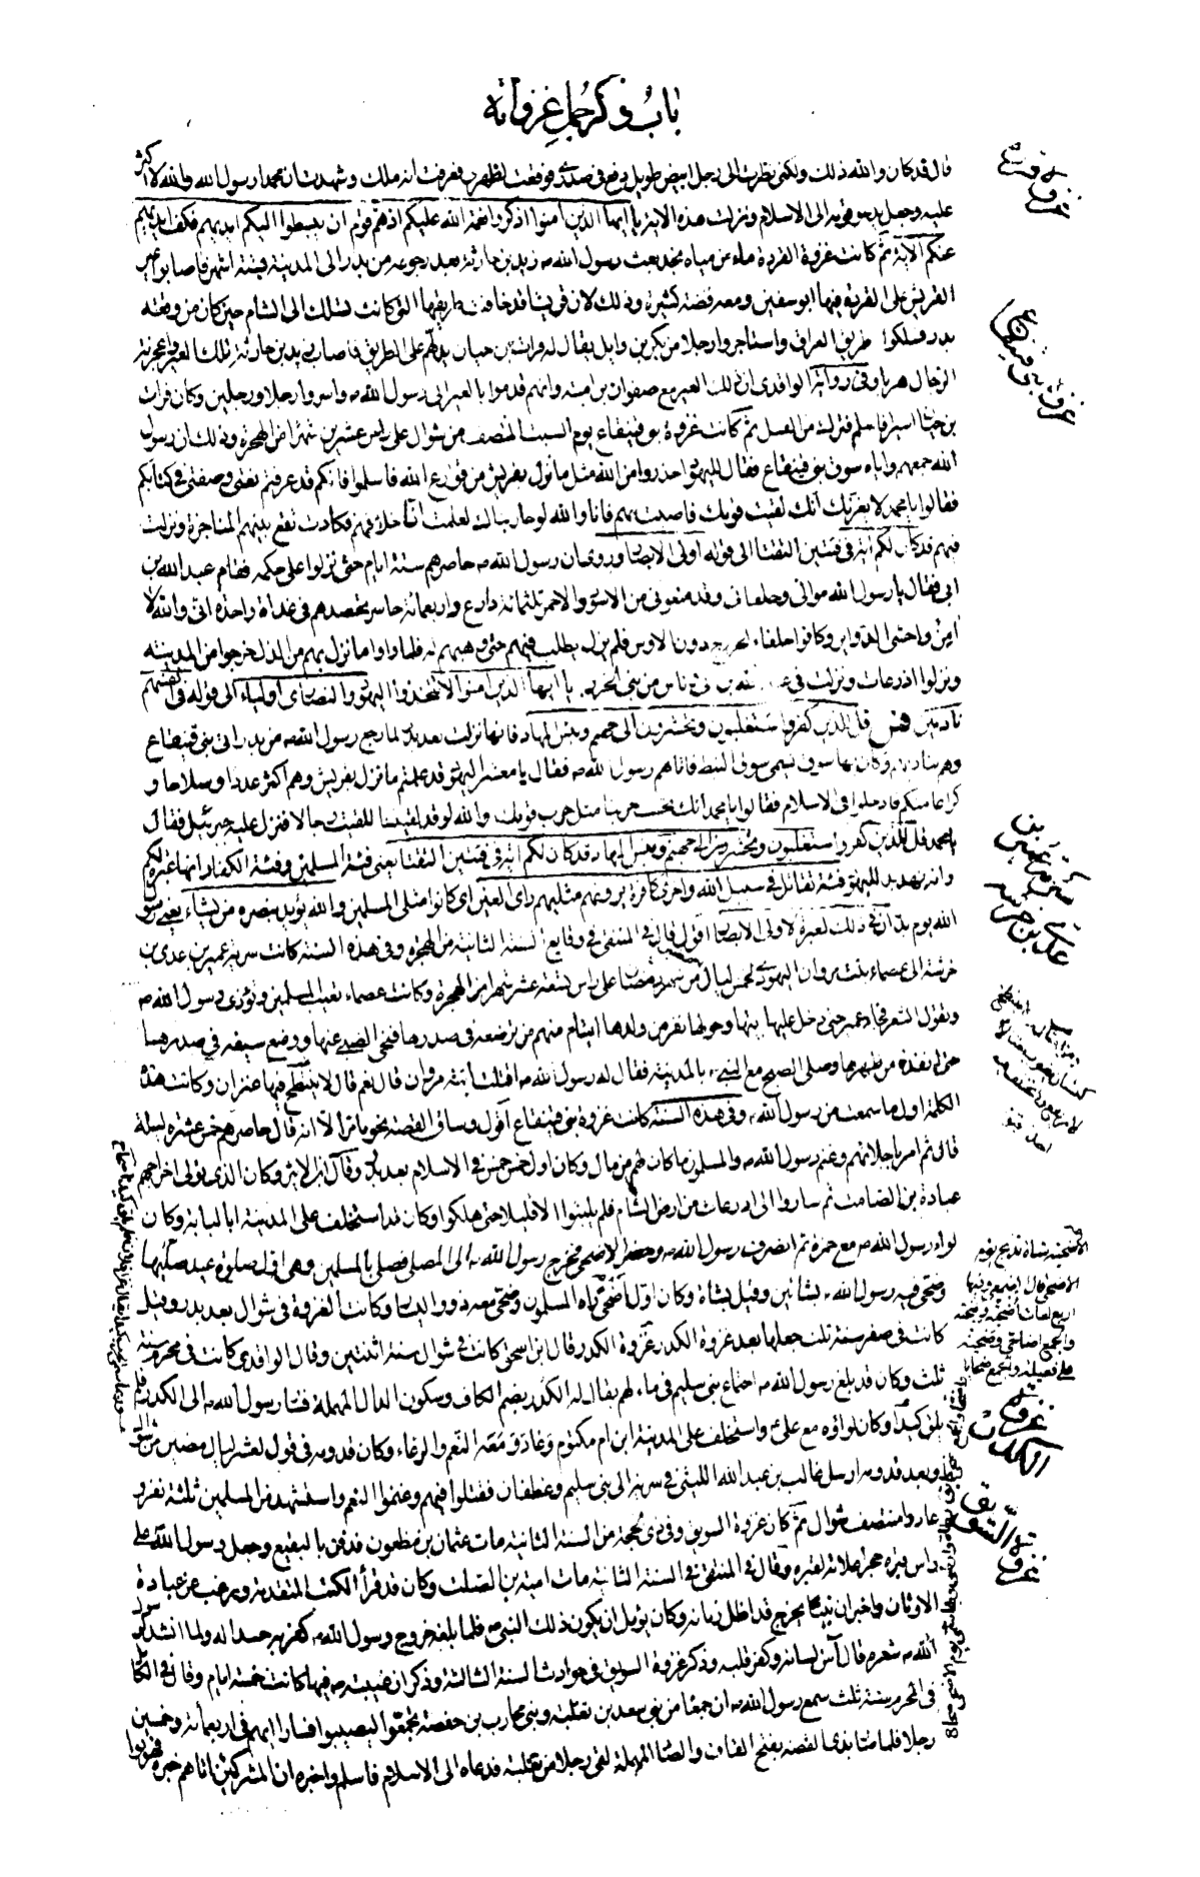 باب ذكر جمل غزواته
قال قد كان والله ذلك ولكني نظرت الى رجل ابيض طويل دفع في صدري فوقعت لظهري فعرفت انه ملك وشهدت ان محمدا رسول الله والله لا اكثر
عليه وجعل يدعو قومه الى الاسلام ونزلت هذه الاية يا ايها الذين آمنوا اذكروا نعمة الله عليكم اذ هم قوم ان يبسطوا اليكم ايديهم فكف ايديهم
عنكم الآية ثم كانت غزوة القردة ماء من مياه نجد بعث رسول الله صـ زيد بن حارثة بعد رجوعه من بدر الى المدينة بستة اشهر فاصابوا عير
القريش على القردة فيها ابو سفين ومعه فضة كثيرة وذلك لان قريشا قد خافت طريقها التي كانت تسلك الى الشام حين كان من وقعة
بدر فسلكوا طريق العراق واستاجروا رجلا من بكر بن وايل يقال له فرات بن حيان يدلهم على الطريق فاصاب زيد بن حارثة تلك العير واعجزته
الرجال هربا وفي رواية الواقدي ان تلك العير مع صفوان بن امية وانهم قدموا بالعير الى رسول الله صـ واسروا رجلا ورجلين وكان فرات
بن حيان اسيرا فاسلم فترك من القتل ثم كانت غزوة بني قينقاع يوم السبت النصف من شوال على راس عشرين شهرا من الهجرة وذلك ان رسول
الله جمعهم واياه سوق بني قينقاع فقال لليهود احذروا من الله مثل ما نزل بقريش من قوارع الله فاسلموا فانكم قد عرفتم نعتي وصفتي في كتابكم
فقالوا يا محمد لا يغرنك انك لقيت قومك فاصبت بهم فانا والله لو حاربناك لعلمت انا خلافهم فكادت تقع بينهم المناجزة ونزلت
فيهم قد كان لكم آية في فئتين التقتا الى قوله اولى الابصار وروي ان رسول الله صـ حاصرهم ستة ايام حتى نزلوا على حكمه فقام عبد الله بن
ابي فقال يا رسول الله موالي وحلفائي وقد منعوني من الاسود والاحمر ثلثمائة دارع واربعمائة حاسر تحصدهم في غداة واحدة اني والله لا
آمن واخشى الدواير وكانوا حلفاء الخزرج دون الاوس فلم يزل يطلب فيهم حتى وهبهم له فلما راوا ما نزل بهم من الذل خرجوا من المدينة
ونزلوا اذرعات ونزلت في عبد الله بن ابي وناس من بني الخزرج يا ايها الذين آمنوا لا تتخذوا اليهود والنصارى اولياء الى قوله في انفسهم
نادمين قل للذين كفروا ستغلبون وتحشرون الى جهنم وبئس المهاد فانها نزلت بعد بدر لما رجع رسول الله صـ من بدر اتى بني قينقاع
وهم بناديهم وكان بها سوق تسمى سوق النبط فاتاهم رسول الله صـ فقال يا معشر اليهود قد علمتم ما نزل بقريش وهم اكثر عددا وسلاحا و
كراعا منكم فادخلوا في الاسلام فقالوا يا محمد انك تحسب حربنا مثل حرب قومك والله لو قد لقيتنا للقيت رجالا فنزل عليه جبرئيل فقال
يا محمد قل للذين كفروا ستغلبون وتحشرون الى جهنم وبئس المهاد قد كان لكم آية في فئتين التقتا يعني فئة المسلمين وفئة الكفار انها عبرة لكم
وانه تهديد لليهود فئة تقاتل في سبيل الله واخرى كافرة يرونهم مثليهم راى العين اى كانوا مثلى المسلمين والله يؤيد بنصره من يشاء يعني رسول
الله يوم بدر ان في ذلك لعبرة لاولى الابصار اقول قال في المنتقى في وقايع السنة الثانية من الهجرة وفي هذه السنة كانت سرية عمير بن عدي بن
خرشة الى عصماء بنت مروان اليهودي لخمس ليال من شهر رمضان على راس تسعة عشر شهرا من الهجرة وكانت عصماء تعيب المسلمين وتؤذي رسول الله صـ
وتقول الشعر فجاء عمير حتى دخل عليها بيتها وحولها نفر من ولدها ايتام منهم من ترضعه في صدرها فنحى الصبي عنها ووضع سيفه في صدرها
حتى انفذه من ظهرها وصلى الصبح مع النبي صـ بالمدينة فقال له رسول الله صـ اقتلت ابنة مروان قال نعم قال لا ينتطح فيها عنزان وكانت هذه
الكلمة اول ما سمعت من رسول الله صـ وفي هذه السنة كانت غزوة بني قينقاع اقول وساق القصة نحوا مما مر الا انه قال حاصرهم خمس عشرة ليلة
قال ثم امر باجلائهم وغنم رسول الله صـ والمسلمون ما كان لهم من مال وكان اول خمس خمس في الاسلام بعد بدر وقال ابن الاثير وكان الذي تولى اخراجهم
عبادة بن الصامت ثم ساروا الى اذرعات من ارض الشام فلم يلبثوا الا قليلا حتى هلكوا وكان قد استخلف على المدينة ابا لبابة وكان
لواء رسول الله صـ مع حمزة ثم انصرف رسول الله صـ وحضر الاضحى فخرج رسول الله صـ الى المصلى فصلى بالمسلمين وهي اول صلوة عيد صلاها
وضحى فيه رسول الله صـ بشاتين وقيل بشاة وكان اول اضحى رآه المسلمون وضحى معه ذوو اليسار وكانت الغزوة في شوال بعد بدر وقيل
كانت في صفر سنة ثلث جعلها بعد غزوة الكدر غزوة الكدر قال ابن اسحق كانت في شوال سنة اثنتين وقال الواقدي كانت في محرم سنة
ثلث وكان قد بلغ رسول الله صـ اجتماع بني سليم في ماء لهم يقال له الكدر بضم الكاف وسكون الدال المهملة فسار رسول الله صـ الى الكدر فلم
يلق كيدا وكان لواؤه مع علي ع واستخلف على المدينة ابن ام مكتوم وعاد ومعه النعم والرعاء وكان قدومه في قول لعشر ليال مضين من شوال
وبعد قدومه ارسل غالب بن عبد الله الليثي في سرية الى بني سليم وغطفان فقتلوا فيهم وغنموا النعم واستشهد من المسلمين ثلثة نفر و
عادوا منتصف شوال ثم كان غزوة السويق وفي ذي الحجة من السنة الثانية مات عثمان بن مظعون فدفن بالبقيع وجعل رسول الله صـ على
راس قبره حجرا علامة لقبره وقال في المنتقى في السنة الثانية مات امية بن الصلت وكان قد قرأ الكتب المتقدمة ورغب عن عبادة
الاوثان واخبر ان نبيا يخرج قد اظل زمانه وكان يؤمل ان يكون ذلك النبي صـ فلما بلغه خروج رسول الله صـ كفر به حسدا له ولما انشد رسول
الله صـ شعره قال آمن لسانه وكفر قلبه وذكر غزوة السويق في حوادث السنة الثالثة وذكر ان غيبته صـ فيها كانت خمسة ايام وقال في الكامل
في المحرم سنة ثلث سمع رسول الله صـ ان جمعا من بني سعد بن ثعلبة وبني محارب بن حفصة تجمعوا ليصيبوا فسار اليهم في اربعمائة وخمسين
رجلا فلما صار بذي القصة بفتح القاف والصاد المهملة لقى رجلا من ثعلبة فدعاه الى الاسلام فاسلم واخبره ان المشركين اتاهم خبره فهربوا
غزوة بني قينقاع
عدي بن خرشة
الاضحية شاة تذبح يوم
الاضحى قال الاصمعي وفيها
اربع لغات اضحية واضحية
والجمع اضاحي وضحية
على فعيلة والجمع ضحايا
غزوة
الكدر
غزوة السويق